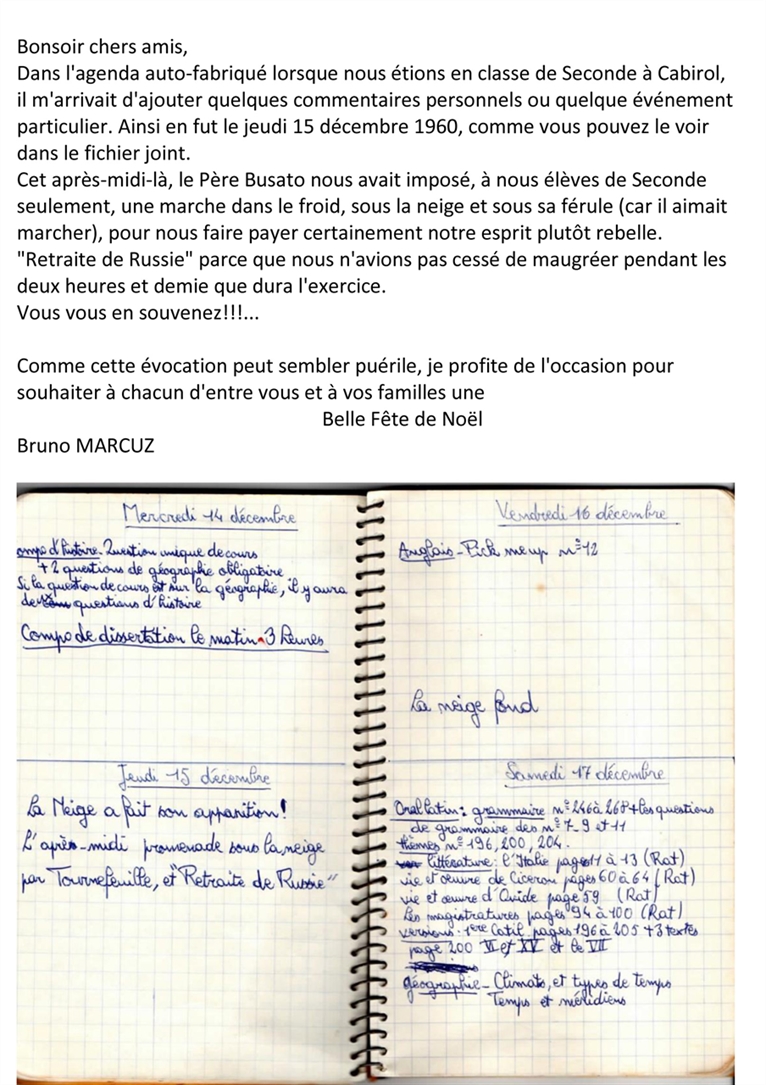 Bonsoir chers amis,
Dans l'agenda auto-fabriqué lorsque nous étions en classe de Seconde à Cabirol,
il m'arrivait d'ajouter quelques commentaires personnels ou quelque événement
particulier. Ainsi en fut le jeudi 15 décembre 1960, comme vous pouvez le voir
dans le fichier joint.
Cet après-midi-là, le Père Busato nous avait imposé, à nous élèves de Seconde
seulement, une marche dans le froid, sous la neige et sous sa férule (car il aimait
marcher), pour nous faire payer certainement notre esprit plutôt rebelle.
"Retraite de Russie" parce que nous n'avions pas cessé de maugréer pendant les
deux heures et demie que dura l'exercice.
Vous vous en souvenez!!!...
Comme cette évocation peut sembler puérile, je profite de l'occasion pour
souhaiter à chacun d'entre vous et à vos familles une
Belle Fête de Noël
Bruno MARCUZ
Mercredi 14 décembre
ompo d'histoire. Question unique de cours
+ 2 questions de géographie obligatoire
Si la question de cours est sur la géographie, il y aura
questions d'histoire
Compo de dissertation le matin. 3 heures
Jeudi 15 décembre
La Neige a fait son apparition!
L'après-midi promenade sous la neige
par Tournefeuille, et "Retraite de Russie"
Vendredi 16 décembre
Anglais - Pick me up n° 12
La neige fond
Samedi 17 décembre
Oral latin: grammaire n° 246 à 268 + les questions
de grammaire des n° 7-9 et 11
thèmes n° 196, 200, 204.
littérature: l'Italie pages 11 à 13 (Rat)
vie et œuvre de Ciceron pages 60 à 64 (Rat)
vie et œuvre d'Ovide page 59 (Rat)
Les magistratures pages 94 à 100 (Rat)
versions. 1ère Catil. pages 196 à 205 + 3 textes
page 200 VI et XV et le VII
géographie - Climats, et types de temps
Temps et méridiens